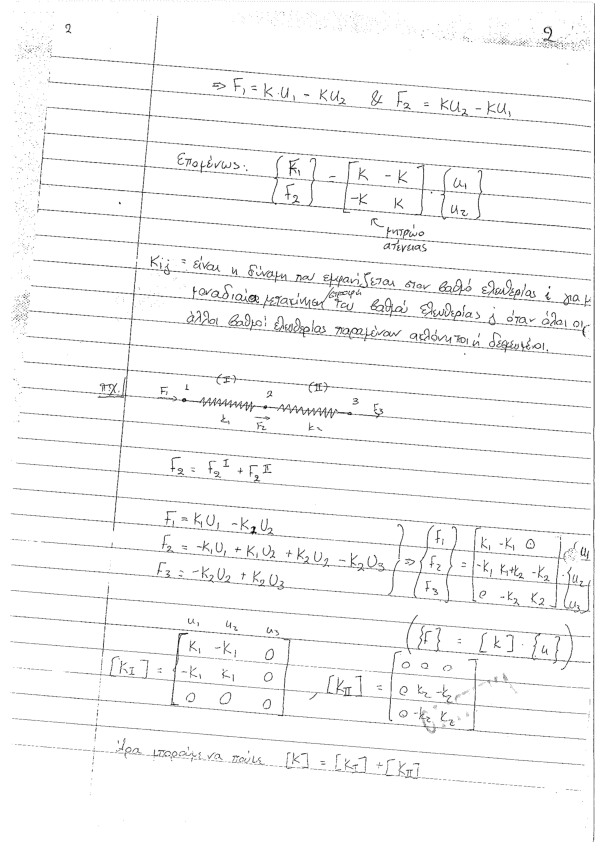 2
2
⇒ F₁ = K·U₁ - KU₂ & F₂ = KU₂ - KU₁
Επομένως: {F₁ F₂} = [K -K; -K K] · {u₁ u₂}
μητρώο
ατένειας
Kij = είναι η δύναμη που εμφανίζεται στον βαθμό ελευθερίας i για μ
μοναδιαία μετακίνηση/στροφή του βαθμού ελευθερίας j όταν όλοι οι
άλλοι βαθμοί ελευθερίας παραμένουν ακλόνητοι ή δεσμευμένοι.
πχ. F₁ 1 (I) 2 (II) 3 F₃
k₁ F₂ k₂
F₂ = F₂ᴵ + F₂ᴵᴵ
F₁ = K₁U₁ - K₂U₂
F₂ = -K₁U₁ + K₁U₂ + K₂U₂ - K₂U₃
F₃ = -K₂U₂ + K₂U₃
⇒ {F₁ F₂ F₃} = [K₁ -K₁ 0; -K₁ K₁+K₂ -K₂; 0 -K₂ K₂] · {u₁ u₂ u₃}
({F} = [k]·{u})
u₁ u₂ u₃
[K_I] = [K₁ -K₁ 0; -K₁ K₁ 0; 0 0 0] , [K_II] = [0 0 0; 0 K₂ -K₂; 0 -K₂ K₂]
Άρα μπορούμε να πούμε [K] = [K_I] + [K_II]